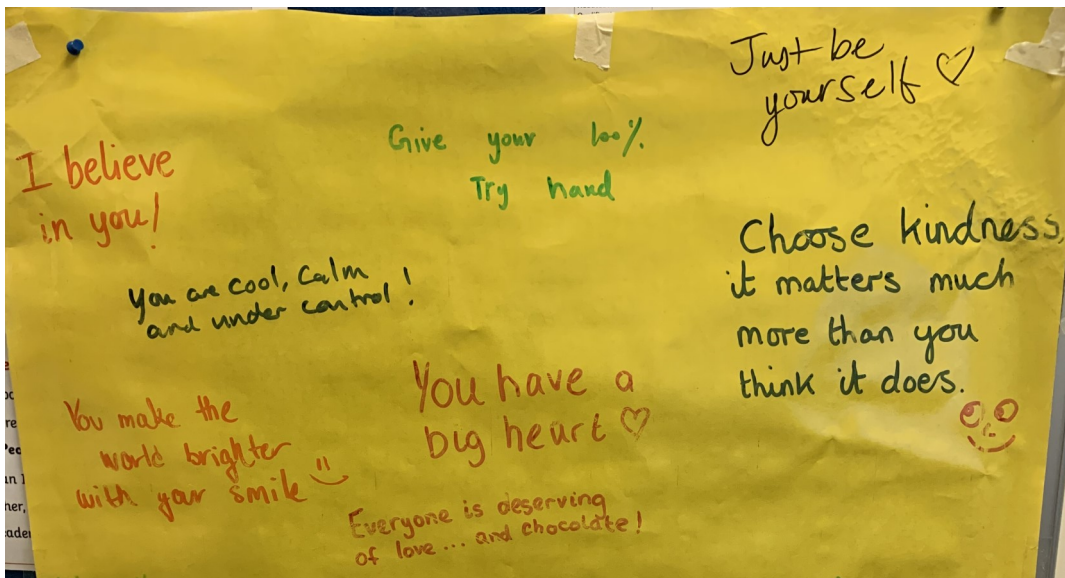 Just be
yourself ♡
Give your 100%.
Try hard
I believe
in you!
Choose kindness,
it matters much
more than you
think it does.
You are cool, calm
and under control!
You have a
big heart ♡
You make the
world brighter
with your smile
Everyone is deserving
of love... and chocolate!